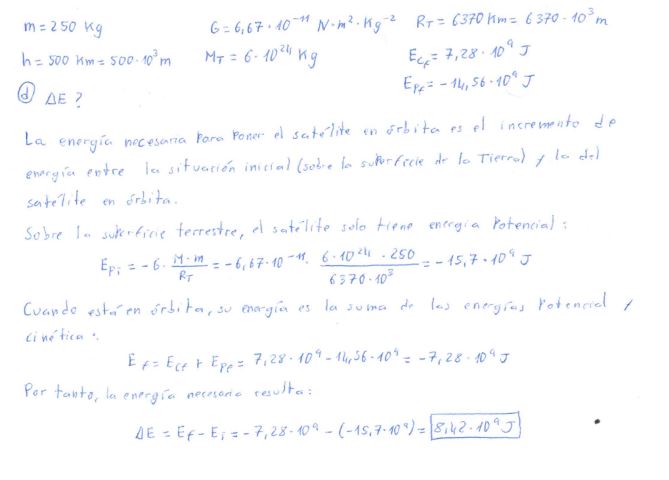 m = 250 Kg G = 6,67 · 10⁻¹¹ N·m²·Kg⁻² R_T = 6370 Km = 6370 · 10³ m
h = 500 Km = 500·10³ m M_T = 6 · 10²⁴ Kg E_cf = 7,28 · 10⁹ J
E_pf = -14,56 · 10⁹ J
d) ΔE ?
La energía necesaria para poner el satélite en órbita es el incremento de
energía entre la situación inicial (sobre la superficie de la Tierra) y la del
satélite en órbita.
Sobre la superficie terrestre, el satélite solo tiene energía potencial :
E_pi = -G · M·m / R_T = -6,67·10⁻¹¹ · 6·10²⁴ · 250 / 6370·10³ = -15,7 · 10⁹ J
Cuando está en órbita, su energía es la suma de las energías potencial y
cinética :
E_f = E_cf + E_pf = 7,28 · 10⁹ - 14,56 · 10⁹ = -7,28 · 10⁹ J
Por tanto, la energía necesaria resulta :
ΔE = E_f - E_i = -7,28·10⁹ - (-15,7·10⁹) = 8,42 · 10⁹ J